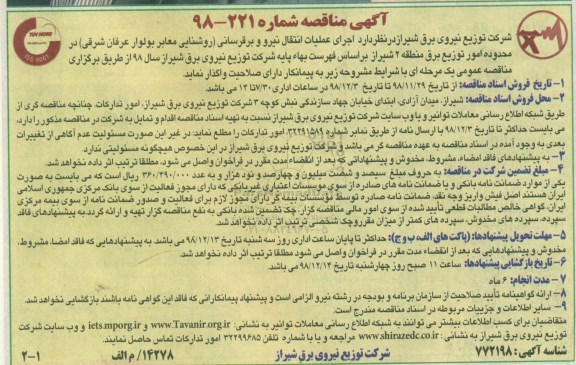 آگهی مناقصه شماره ۲۲۱-۹۸
شرکت توزیع نیروی برق شیراز درنظردارد اجرای عملیات انتقال نیرو و برقرسانی (روشنایی معابر بولوار عرفان شرقی) در
محدوده امور توزیع برق منطقه ۲ شیراز براساس فهرست بهاء پایه شرکت توزیع نیروی برق شیراز سال ۹۸ از طریق برگزاری
مناقصه عمومی یک مرحله ای با شرایط مشروحه زیر به پیمانکار دارای صلاحیت واگذار نماید.
۱- تاریخ فروش اسناد مناقصه: از تاریخ ۹۸/۱۱/۲۹ تا تاریخ ۹۸/۱۲/۳ در ساعات اداری ۷/۳۰ تا ۱۴ می باشد.
۲- محل فروش اسناد مناقصه: شیراز، میدان آزادی، ابتدای خیابان جهاد سازندگی نبش کوچه ۳ شرکت توزیع نیروی برق شیراز، امور تدارکات چنانچه مناقصه گری از
طریق شبکه اطلاع رسانی معاملات توانیر و یا وب سایت شرکت توزیع نیروی برق شیراز نسبت به تهیه اسناد مناقصه اقدام و تمایل به شرکت در مناقصه مذکور را دارد،
می بایست حداکثر تا تاریخ ۹۸/۱۲/۳ با ارسال نامه از طریق نمابر شماره ۳۲۲۹۱۵۸۹ امور تدارکات را مطلع نماید؛ در غیر این صورت مسئولیت عدم آگاهی از تغییرات
بعدی به وجود آمده در اسناد مناقصه به عهده مناقصه گر می باشد و شرکت توزیع نیروی برق شیراز در این خصوص هیچگونه مسئولیتی ندارد.
۳- به پیشنهادهای فاقد امضاء، مشروط، مخدوش و پیشنهاداتی که بعد از انقضاء مدت مقرر در فراخوان واصل می شود، مطلقا ترتیب اثر داده نخواهد شد.
۴- مبلغ تضمین شرکت در مناقصه: به حروف مبلغ سیصد و شصت میلیون و چهارصد و نود هزار و به عدد ۳۶۰/۴۹۰/۰۰۰ ریال است که می بایست به صورت
یکی از موارد ضمانت نامه بانکی و یا ضمانت نامه های صادره از سوی مؤسسات اعتباری غیربانکی که دارای مجوز فعالیت از سوی بانک مرکزی جمهوری اسلامی
ایران هستند، اصل فیش واریز وجه نقد، ضمانت نامه صادره توسط مؤسسات بیمه گر دارای مجوز لازم برای فعالیت و صدور ضمانت نامه از سوی بیمه مرکزی
ایران، گواهی خالص مطالبات قطعی تأیید شده از سوی امور مالی مناقصه گزار، چک تضمین شده بانکی به نفع مناقصه گزار تهیه و ارائه گردد به پیشنهادهای فاقد
سپرده، سپرده های مخدوش، سپرده های کمتر از میزان مقرر و چک شخصی ترتیب اثر داده نخواهد شد.
۵- مهلت تحویل پیشنهادها: (پاکت های الف، ب و ج): حداکثر تا پایان ساعت اداری روز سه شنبه تاریخ ۹۸/۱۲/۱۳ می باشد. به پیشنهادهایی که فاقد امضا، مشروط،
مخدوش و پیشنهادهایی که بعد از انقضاء مدت مقرر در فراخوان واصل می شود مطلقا ترتیب اثر داده نخواهد شد.
۶- تاریخ بازگشایی پیشنهادها: ساعت ۱۱ صبح روز چهارشنبه تاریخ ۹۸/۱۲/۱۴ می باشد.
۷- مدت انجام: ۶ ماه
۸- ارائه گواهینامه تأیید صلاحیت از سازمان برنامه و بودجه در رشته نیرو الزامی است و پیشنهاد پیمانکارانی که فاقد این گواهی نامه باشند بازگشایی نخواهد شد.
۹- سایر اطلاعات و جزییات مربوطه در اسناد مناقصه مندرج است.
متقاضیان برای کسب اطلاعات بیشتر می توانند به شبکه اطلاع رسانی معاملات توانیر به نشانی: www.Tavanir.org.ir و iets.mporg.ir و وب سایت شرکت
توزیع نیروی برق شیراز به نشانی: www.shirazedc.co.ir مراجعه و یا با شماره تلفن ۳۲۲۹۹۶۸۵ امور تدارکات تماس حاصل نمایند.
شناسه آگهی: ۷۷۲۱۹۸ شرکت توزیع نیروی برق شیراز ۱۴۲۷۸/م الف ۲-۱
TUV NORD
ISO 9001